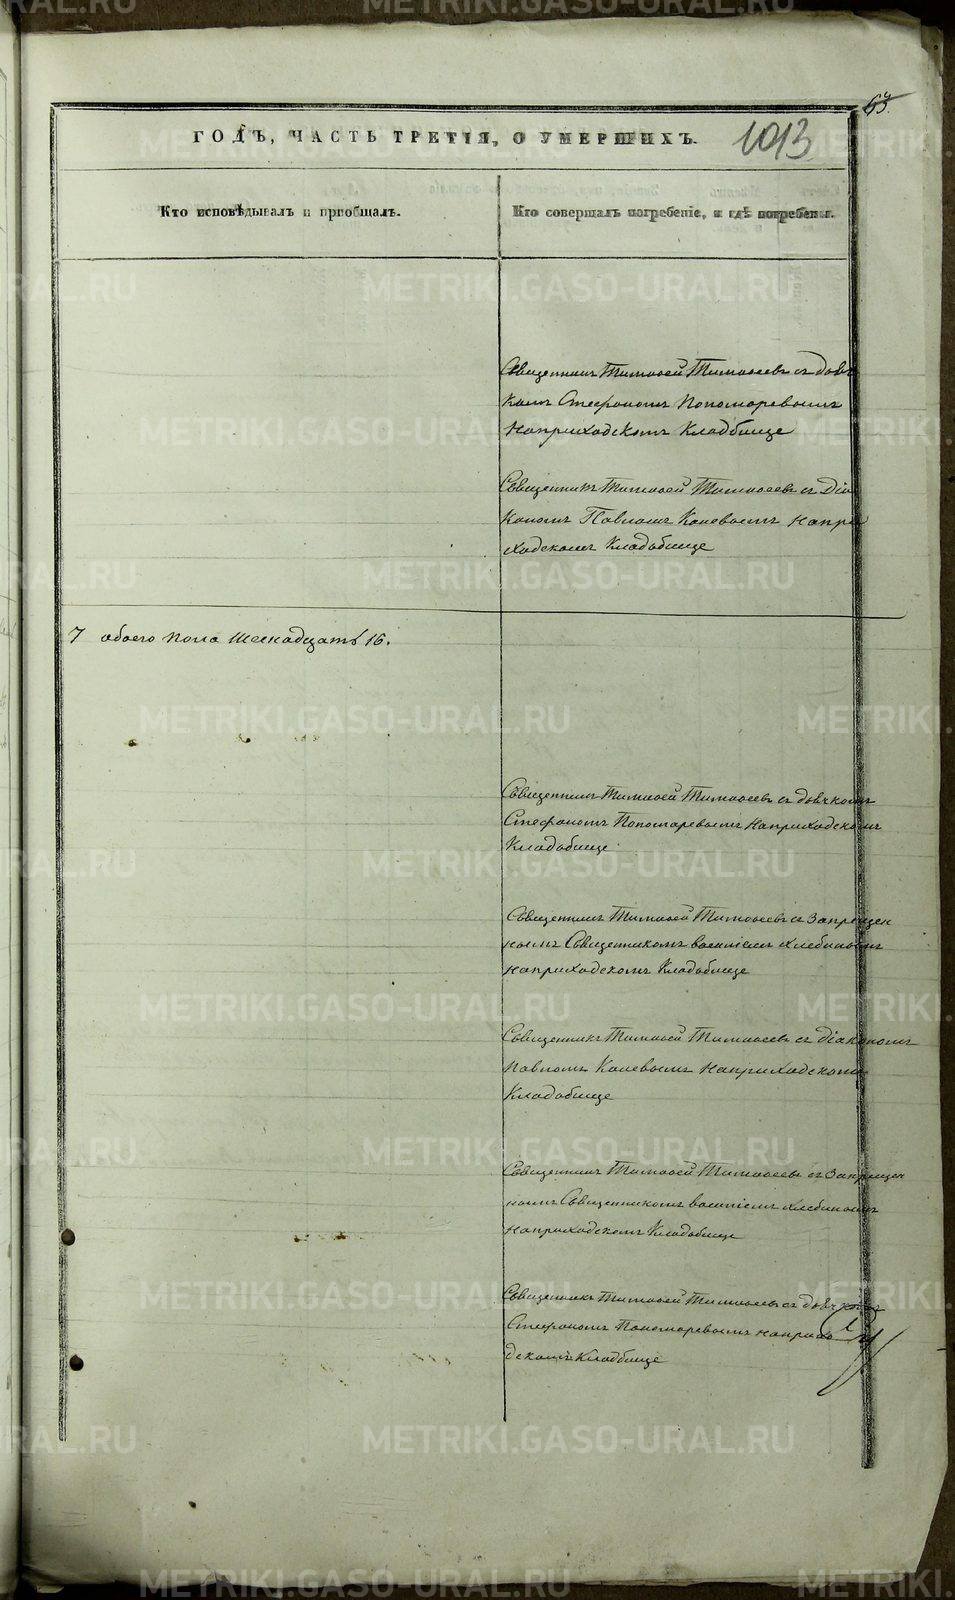 63.
ГОДЪ, ЧАСТЬ ТРЕТІЯ, О УМЕРШИХЪ.
1013
Кто исповѣдывалъ и пріобщалъ.
Кто совершалъ погребеніе, и гдѣ погребены.
Священникъ Тимоѳей Тимоѳеевъ съ дьяч
комъ Стефаномъ Пономаревымъ
наприходскомъ Кладбище
Священникъ Тимоѳей Тимоѳеевъ съ Діа
кономъ Павломъ Каневымъ напри
ходскомъ Кладбище
7 обоего пола шеснадцать 16.
Священникъ Тимоѳей Тимоѳеевъ съ дьячкомъ
Стефаномъ Пономаревымъ наприходскомъ
Кладбище
Священникъ Тимоѳей Тимоѳеевъ съ Запрещен
нымъ Священникомъ Хлебинымъ
наприходскомъ Кладбище
Священникъ Тимоѳей Тимоѳеевъ съ Діакономъ
Павломъ Каневымъ наприходскомъ
Кладбище
Священникъ Тимоѳей Тимоѳеевъ съ Запрещен
нымъ Священникомъ Хлебинымъ
наприходскомъ Кладбище
Священникъ Тимоѳей Тимоѳеевъ съ дьячкомъ
Стефаномъ Пономаревымъ наприхо
дскомъ Кладбище
METRIKI.GASO-URAL.RU